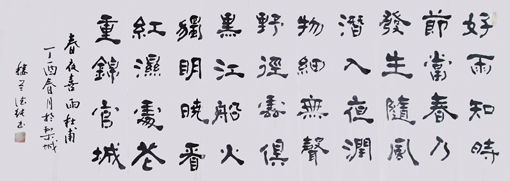 好雨知時
節當春乃
發生隨風
潛入夜潤
物細無聲
野徑雲俱
黑江船火
獨明曉看
紅濕處花
重錦官城
春夜喜雨 杜甫
丁酉春月於梨城